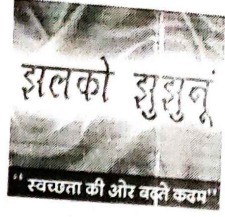 झलको झुझुनूं
"स्वच्छता की ओर बढ़ते कदम"